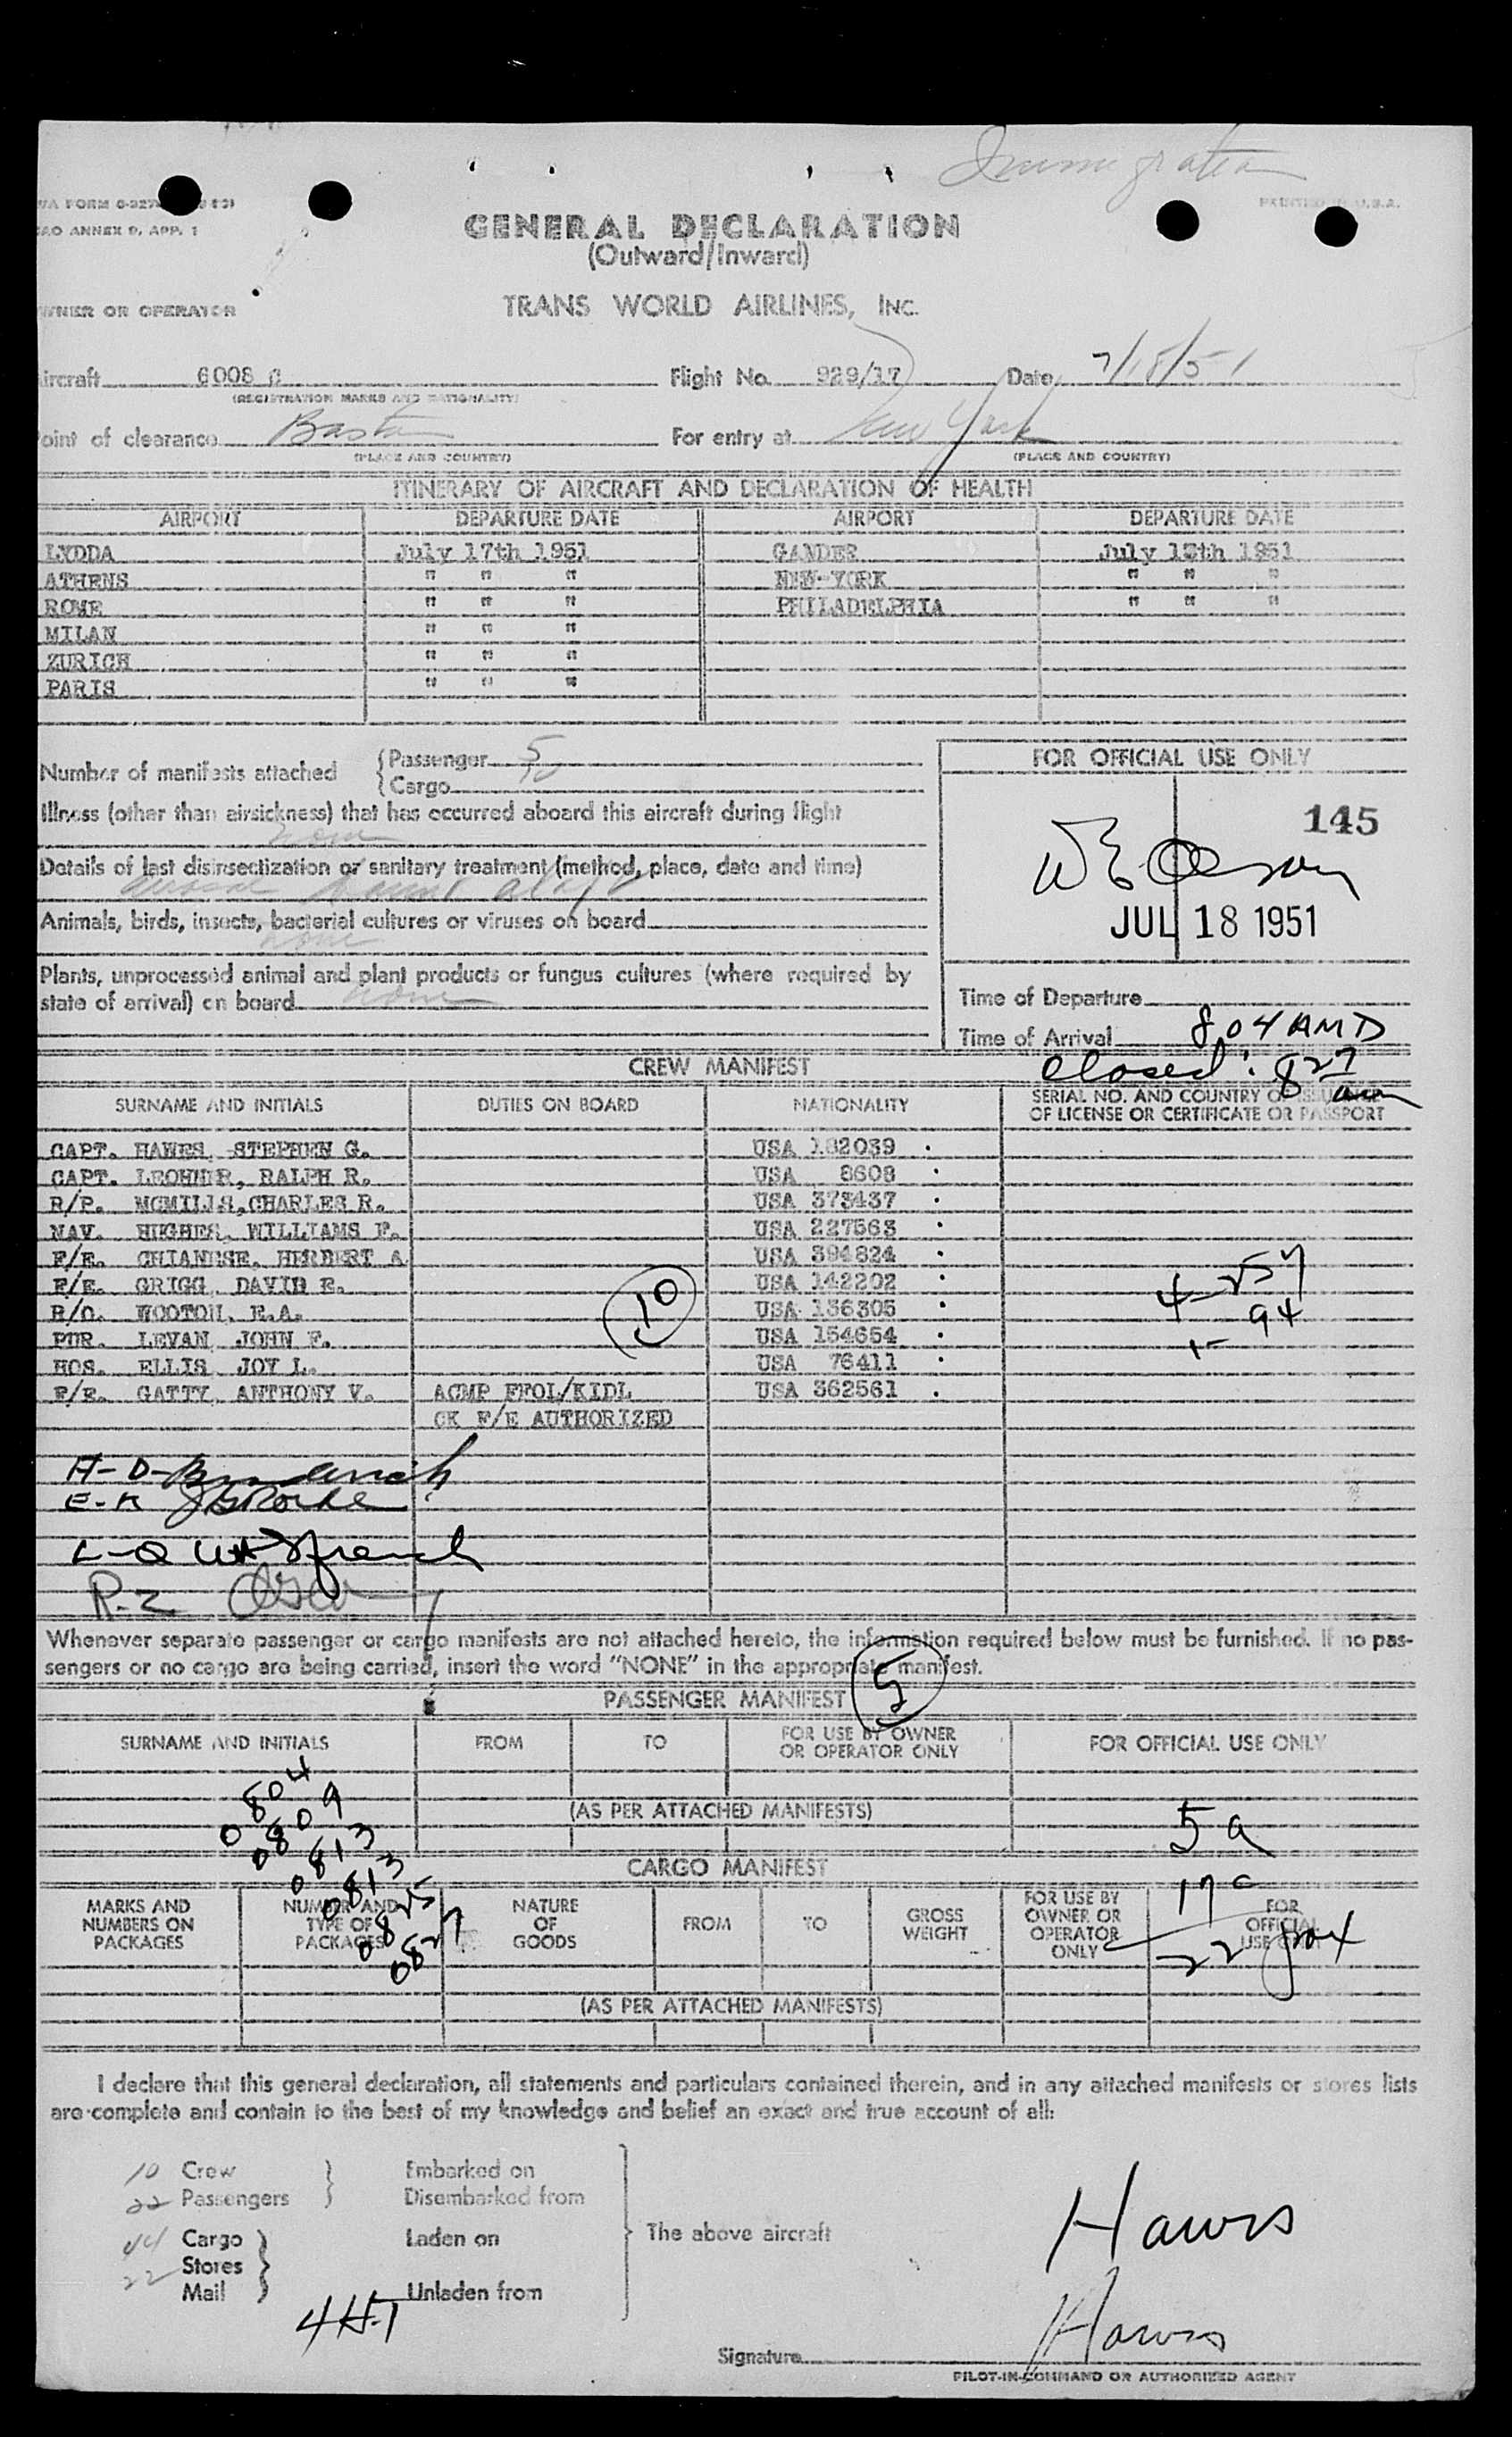 Immigration
WA FORM
PRINTED IN U.S.A.
AO ANNEX 9, APP. 1
GENERAL DECLARATION
(Outward/Inward)
WNER OR OPERATOR
TRANS WORLD AIRLINES, INC.
ircraft 6008 C Flight No. 929/17 Date 7/18/51
(REGISTRATION MARKS AND NATIONALITY)
oint of clearance Boston For entry at New York
(PLACE AND COUNTRY) (PLACE AND COUNTRY)
ITINERARY OF AIRCRAFT AND DECLARATION OF HEALTH
AIRPORT DEPARTURE DATE AIRPORT DEPARTURE DATE
LYDDA July 17th 1951 GANDER July 18th 1951
ATHENS " " " NEW YORK " " "
ROME " " " PHILADELPHIA " " "
MILAN " " "
ZURICH " " "
PARIS " " "
Number of manifests attached { Passenger 5
{ Cargo 10
Illness (other than airsickness) that has occurred aboard this aircraft during flight
none
Details of last disinsectization or sanitary treatment (method, place, date and time)
Animals, birds, insects, bacterial cultures or viruses on board
none
Plants, unprocessed animal and plant products or fungus cultures (where required by
state of arrival) on board none
FOR OFFICIAL USE ONLY
145
JUL 18 1951
Time of Departure
Time of Arrival 8 04 AM D
closed: 8 27 am
CREW MANIFEST
SURNAME AND INITIALS DUTIES ON BOARD NATIONALITY SERIAL NO. AND COUNTRY OF ISSUANCE
OF LICENSE OR CERTIFICATE OR PASSPORT
CAPT. HAWES, STEPHEN G. USA 182039
CAPT. RALPH R. USA 8608
R/P. CHARLES R. USA 373437
NAV. HUGHES, WILLIAMS F. USA 227563
F/E. CHIANESE, HERBERT A USA 394824
F/E. GRIGG, DAVID E. USA 142202
R/O. WOOTON, E.A. USA 136305
PUR. LEVAN, JOHN F. USA 154654
HOS. ELLIS, JOY L. USA 76411
F/E. GATTY, ANTHONY V. ACMP FFOL/KIDL USA 362561
CK F/E AUTHORIZED
10
4-
94
1-
H-D-
E-K
L-Q French
R-Z
Whenever separate passenger or cargo manifests are not attached hereto, the information required below must be furnished. If no pas-
sengers or no cargo are being carried, insert the word "NONE" in the appropriate manifest.
PASSENGER MANIFEST 5
SURNAME AND INITIALS FROM TO FOR USE BY OWNER
OR OPERATOR ONLY FOR OFFICIAL USE ONLY
0804
0809
0813
0813
0825
0827
(AS PER ATTACHED MANIFESTS)
5 a
17 c
22 pax
CARGO MANIFEST
MARKS AND
NUMBERS ON
PACKAGES
NUMBER AND
TYPE OF
PACKAGES
NATURE
OF
GOODS
FROM
TO
GROSS
WEIGHT
FOR USE BY
OWNER OR
OPERATOR
ONLY
FOR
OFFICIAL
USE ONLY
(AS PER ATTACHED MANIFESTS)
I declare that this general declaration, all statements and particulars contained therein, and in any attached manifests or stores lists
are complete and contain to the best of my knowledge and belief an exact and true account of all:
10 Crew } Embarked on
22 Passengers } Disembarked from
44 Cargo } Laden on The above aircraft
22 Stores }
Mail } Unladen from
Hawes
Hawes
Signature
PILOT-IN-COMMAND OR AUTHORIZED AGENT